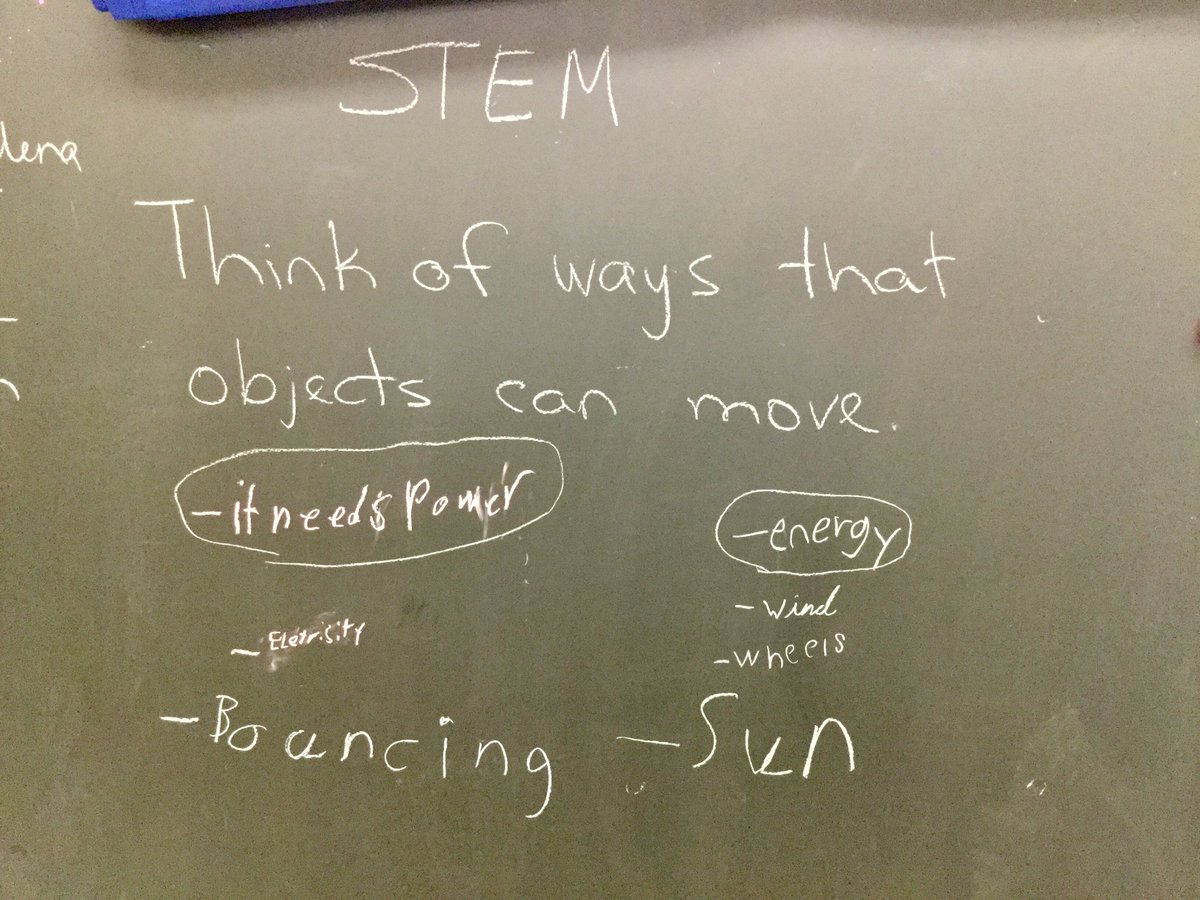 STEM
Think of ways that
objects can move.
-it needs Power
-energy
-wind
-Eletricity
-wheels
-Bouncing -Sun